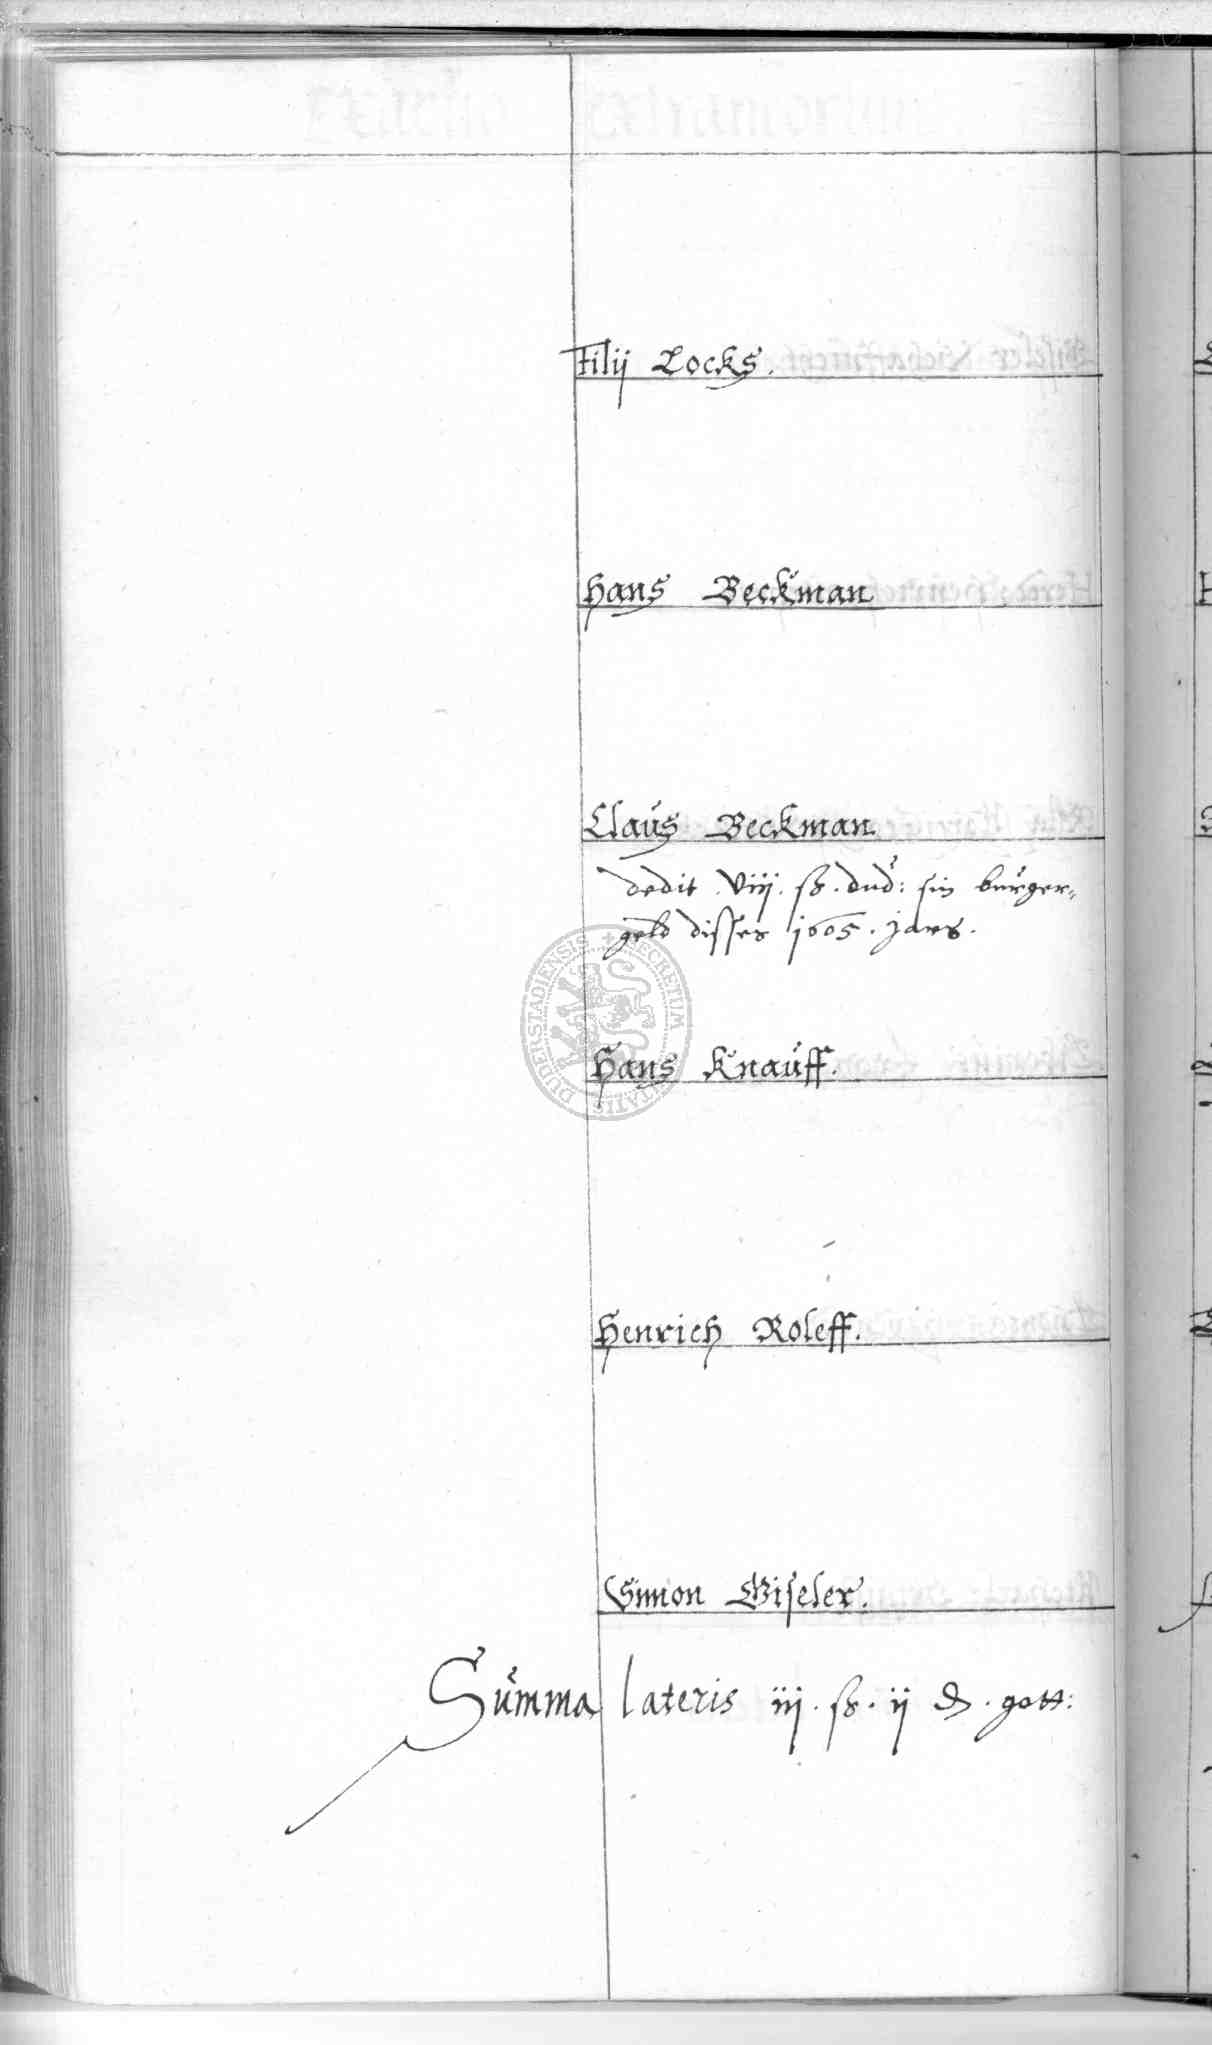 Filij Locks.
Hans Beckman
Claus Beckman
dedit . viij . ß . dud: sin burger-
geld disses 1605 . jars .
Hans Knauff.
Henrich Roleff.
Simon Giseler.
Summa lateris iij . ß . ij ₰ . gott:
DUDERSTADIENSIS SECRETUM